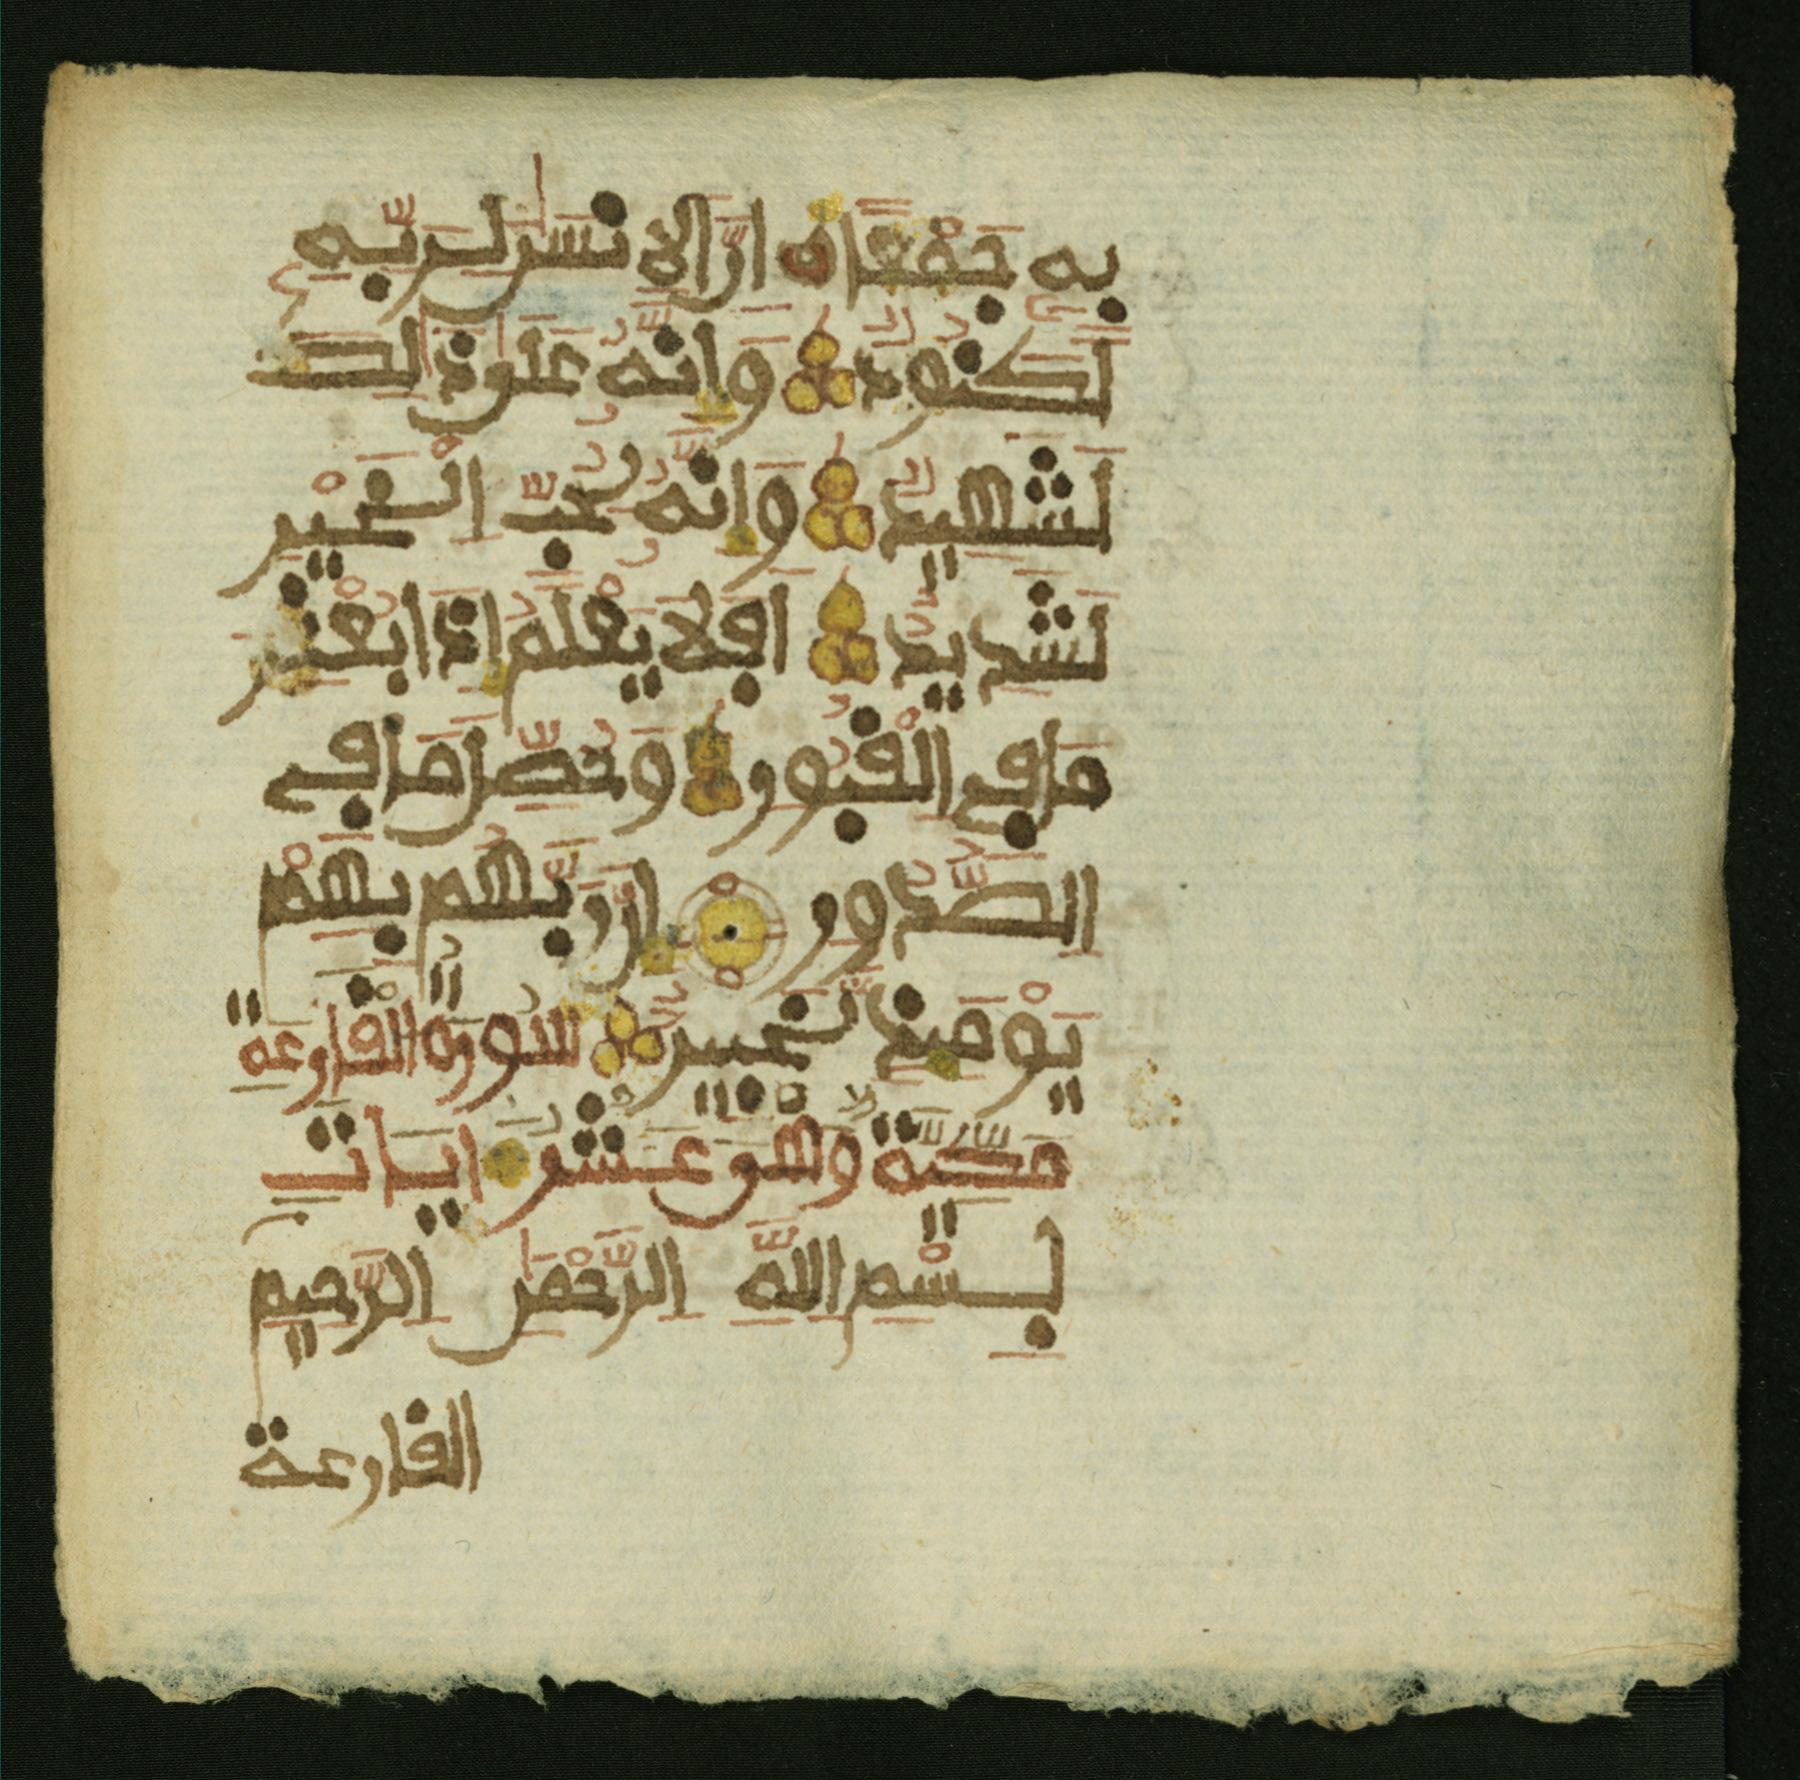 بِهِۦ جَمْعًا اِنَّ اَلِانسَٰنَ لِرَبِّهِۦ
لَكَنُودٌ وَإِنَّهُۥ عَلَىٰ ذَٰلِكَ
لَشَهِيدٌ وَإِنَّهُۥ لِحُبِّ اِلْخَيْرِ
لَشَدِيدٌ اَفَلَا يَعْلَمُ إِذَا بُعْثِرَ
مَا فِے اِلْقُبُورِ وَحُصِّلَ مَا فِے
اِلصُّدُورِ إِنَّ رَبَّهُم بِهِمْ
يَوْمَئِذٍ لَّخَبِيرٌ سُورَةُ الْقَارِعَةِ
مَكِّيَّةٌ وَهُوَ عَشْرُ اٰيَاتٍ
بِسْمِ اِللَّهِ اِلرَّحْمَٰنِ اِلرَّحِيمِ
القارعة